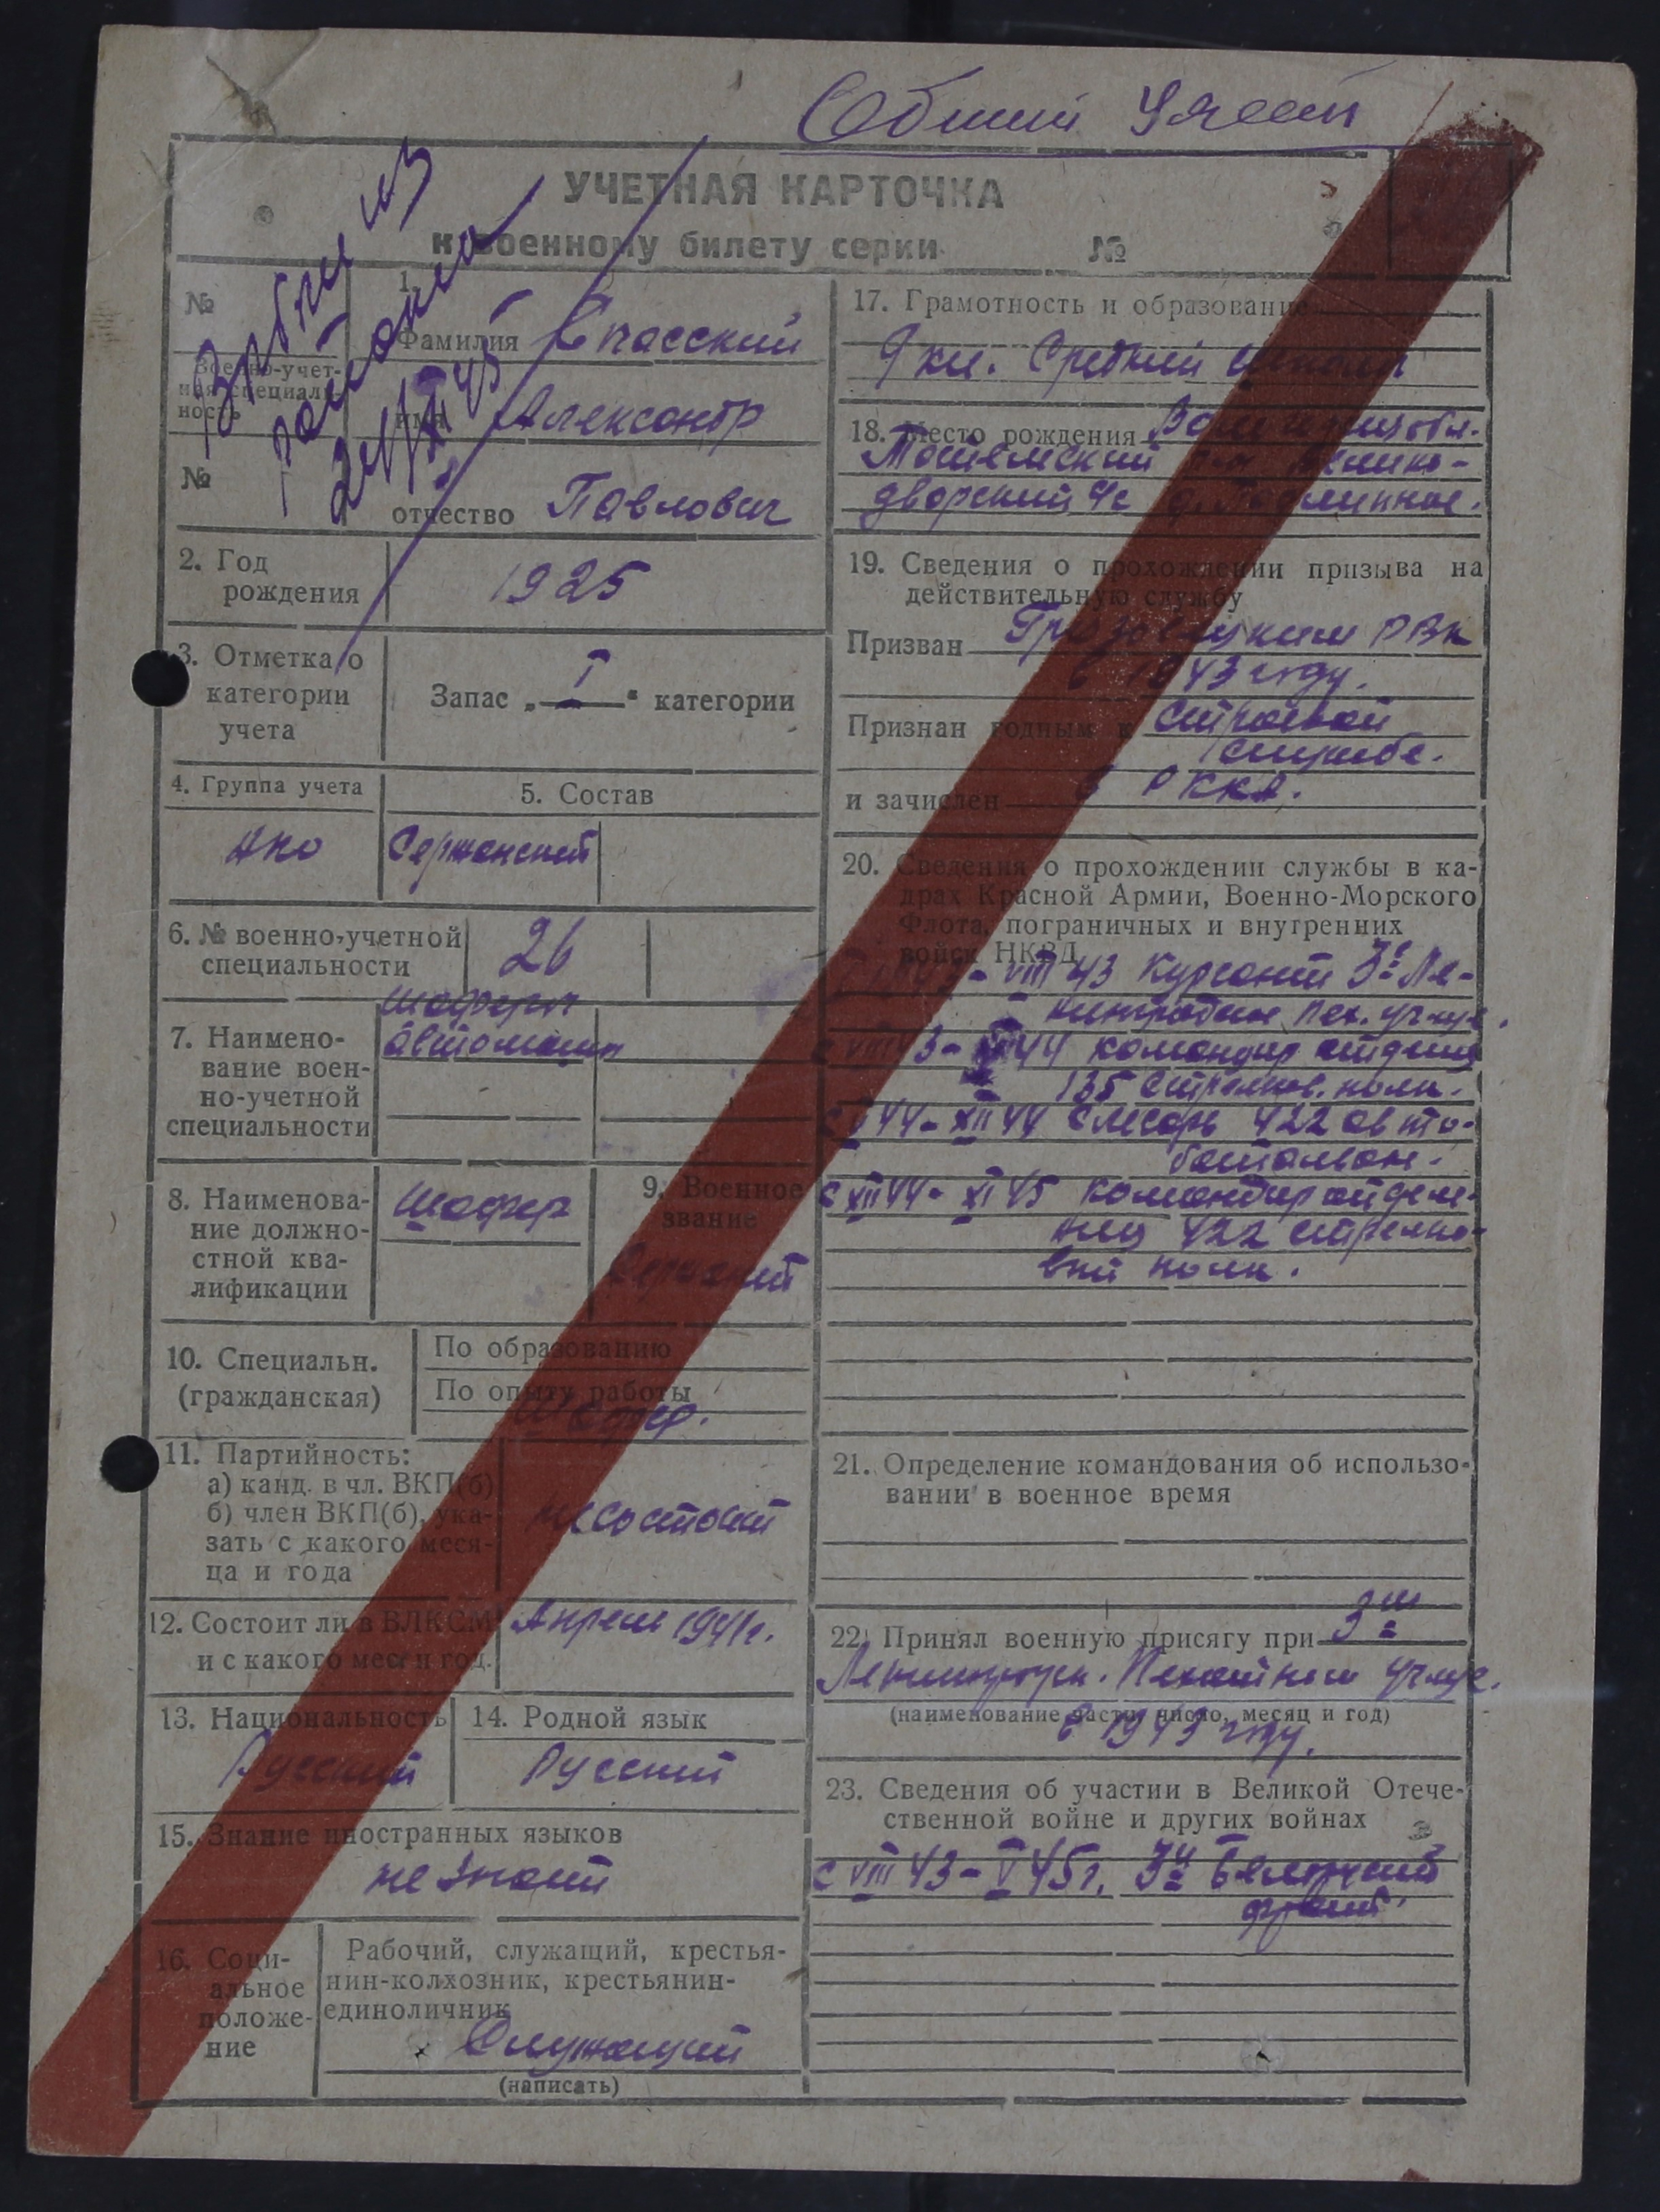 Общий Учет
УЧЕТНАЯ КАРТОЧКА
к военному билету серии №
Выбыл из
района
XII 45
№
Военно-учет-
ная специаль-
ность
№
1.
Фамилия Спасский
имя Александр
отчество Павлович
2. Год
рождения
1925
3. Отметка о
категории
учета
Запас „ I “ категории
4. Группа учета
АКО
5. Состав
Сержанский
6. № военно-учетной
специальности
26
7. Наимено-
вание воен-
но-учетной
специальности
шофера
автомашин
8. Наименова-
ние должно-
стной ква-
лификации
Шофер
9. Военное
звание
Сержант
10. Специальн.
(гражданская)
По образованию
По опыту работы
Шофер.
11. Партийность:
а) канд. в чл. ВКП(б)
б) член ВКП(б), ука-
зать с какого меся-
ца и года
не состоит
12. Состоит ли в ВЛКСМ
и с какого мес. и год.
Апрель 1941г.
13. Национальность
Русский
14. Родной язык
Русский
15. Знание иностранных языков
не знает
16. Соци-
альное
положе-
ние
Рабочий, служащий, крестья-
нин-колхозник, крестьянин-
единоличник
Служащий
(написать)
17. Грамотность и образование
9 кл. Средней школы
18. Место рождения обл.
Велико-
дворский с/с д.
19. Сведения о прохождении призыва на
действительную службу
Призван Грязовецким РВК
в 1943 году.
Признан годным к строевой
службе.
и зачислен в РККА.
20. Сведения о прохождении службы в ка-
драх Красной Армии, Военно-Морского
Флота, пограничных и внутренних
войск НКВД
43 - VIII 43 Курсант 3е Ле-
нинградск. пех. учил.
с VIII 43 - 44 командир отделен
135 стрелков. полк.
с V 44 - XII 44 Слесарь 422 авто-
батальон.
с XII 44 - XI 45 Командир отделе-
ния 422 стрелко-
вый полк.
21. Определение командования об использо-
вании в военное время
22. Принял военную присягу при 3ем
Ленинградск. Пехотном учил.
(наименование части, число, месяц и год)
в 1943 году.
23. Сведения об участии в Великой Отече-
ственной войне и других войнах
с VIII 43 - V 45 г. 3й Белорусский
фронт.